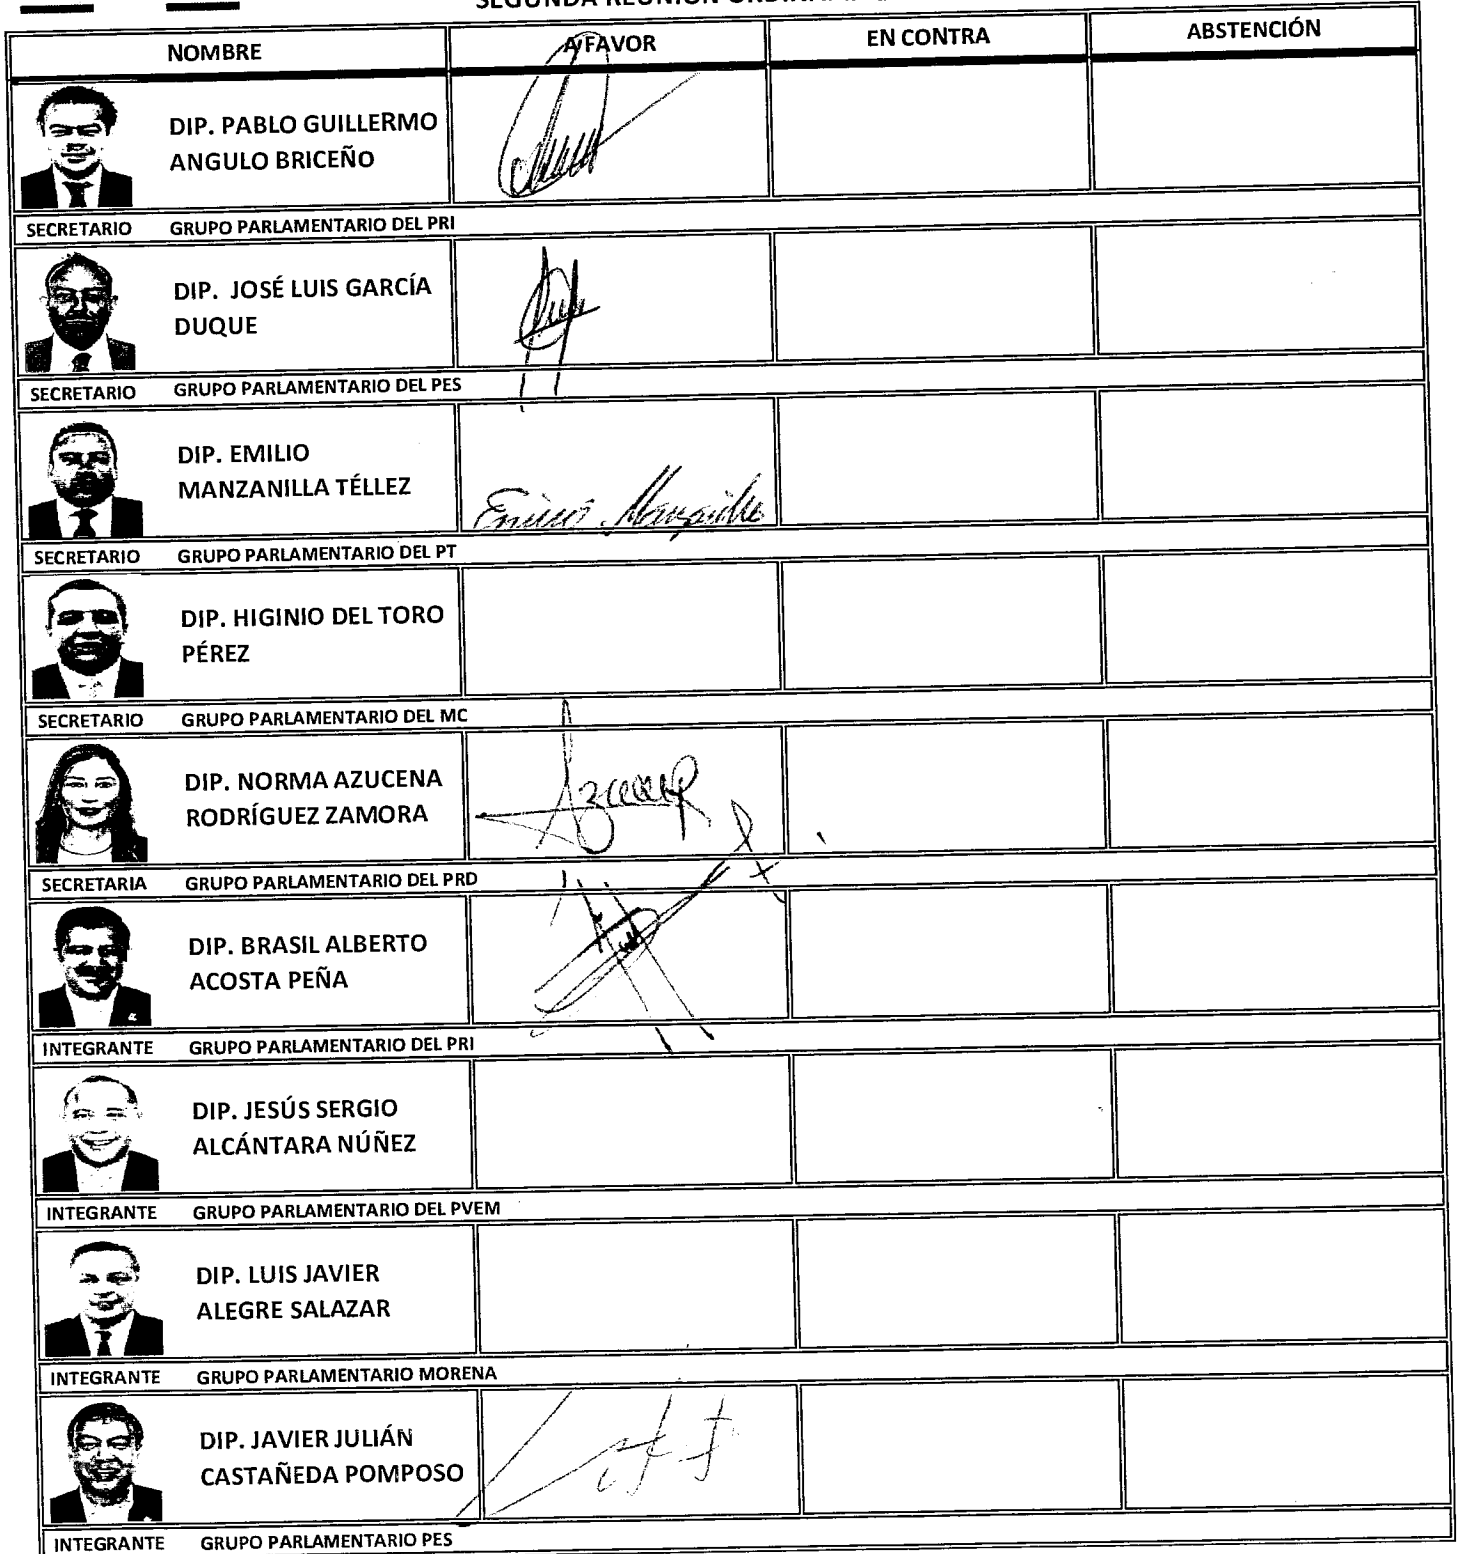 SEGUNDA REUNIÓN
NOMBRE A FAVOR EN CONTRA ABSTENCIÓN
DIP. PABLO GUILLERMO
ANGULO BRICEÑO
SECRETARIO GRUPO PARLAMENTARIO DEL PRI
DIP. JOSÉ LUIS GARCÍA
DUQUE
SECRETARIO GRUPO PARLAMENTARIO DEL PES
DIP. EMILIO
MANZANILLA TÉLLEZ
Emilio Manzanilla
SECRETARIO GRUPO PARLAMENTARIO DEL PT
DIP. HIGINIO DEL TORO
PÉREZ
SECRETARIO GRUPO PARLAMENTARIO DEL MC
DIP. NORMA AZUCENA
RODRÍGUEZ ZAMORA
SECRETARIA GRUPO PARLAMENTARIO DEL PRD
DIP. BRASIL ALBERTO
ACOSTA PEÑA
INTEGRANTE GRUPO PARLAMENTARIO DEL PRI
DIP. JESÚS SERGIO
ALCÁNTARA NÚÑEZ
INTEGRANTE GRUPO PARLAMENTARIO DEL PVEM
DIP. LUIS JAVIER
ALEGRE SALAZAR
INTEGRANTE GRUPO PARLAMENTARIO MORENA
DIP. JAVIER JULIÁN
CASTAÑEDA POMPOSO
INTEGRANTE GRUPO PARLAMENTARIO PES